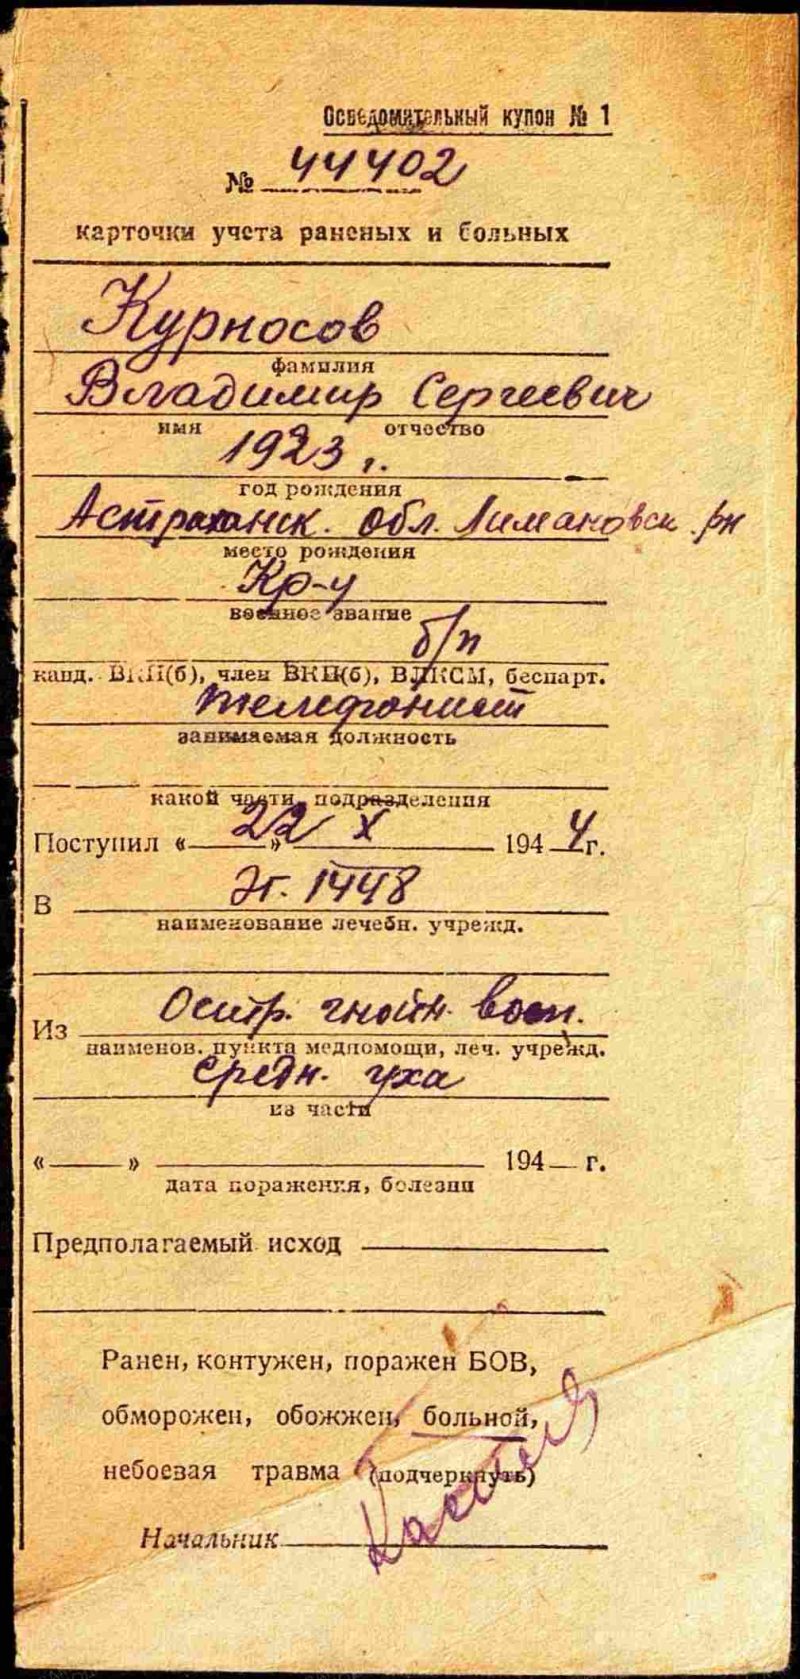 Осведомительный купон № 1
№ 44402
карточки учета раненых и больных
Курносов
фамилия
Владимир Сергеевич
имя отчество
1923 г.
год рождения
Астраханск. обл. Лимановск. рн
место рождения
Кр-ц
военное звание
б/п
канд. ВКП(б), член ВКП(б), ВЛКСМ, беспарт.
телефонист
занимаемая должность
какой части, подразделения
Поступил « 22 » X 194 4 г.
В Эг. 1448
наименование лечебн. учрежд.
Из Остр. гнойн. восп.
наименов. пункта медпомощи, леч. учрежд.
средн. уха
из части
« — » — 194 — г.
дата поражения, болезни
Предполагаемый исход
Ранен, контужен, поражен БОВ,
обморожен, обожжен, больной,
небоевая травма (подчеркнуть)
Начальник